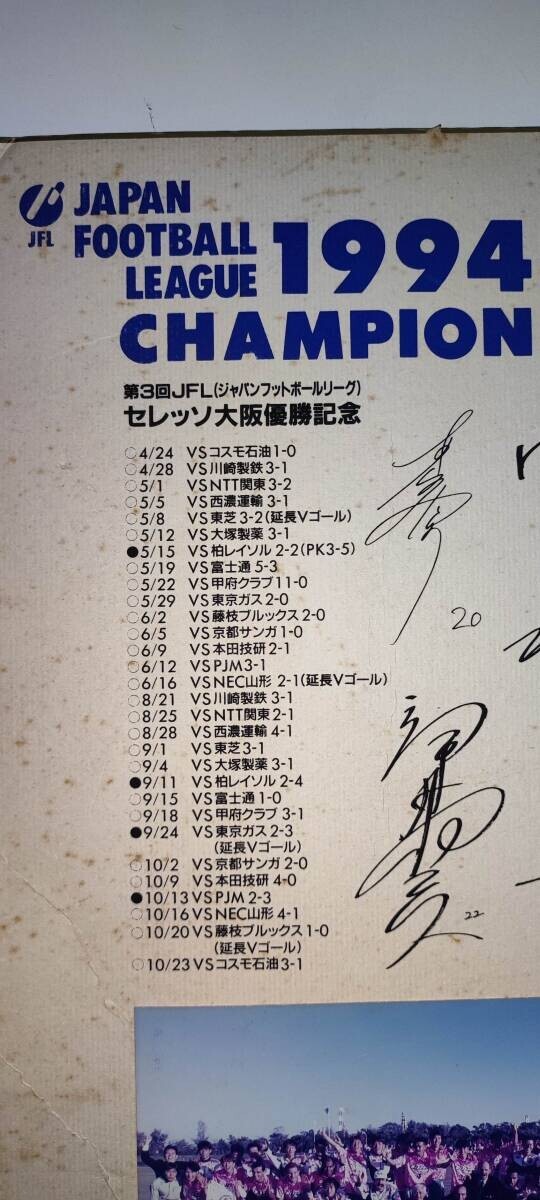 JAPAN
FOOTBALL
LEAGUE
JFL
1994
CHAMPION
第3回JFL(ジャパンフットボールリーグ)
セレッソ大阪優勝記念
○4/24 VSコスモ石油1-0
○4/28 VS川崎製鉄3-1
○5/1 VSNTT関東3-2
○5/5 VS西濃運輸3-1
○5/8 VS東芝3-2(延長Vゴール)
○5/12 VS大塚製薬3-1
●5/15 VS柏レイソル2-2(PK3-5)
○5/19 VS富士通5-3
○5/22 VS甲府クラブ11-0
○5/29 VS東京ガス2-0
○6/2 VS藤枝ブルックス2-0
○6/5 VS京都サンガ1-0
○6/9 VS本田技研2-1
○6/12 VSPJM3-1
○6/16 VSNEC山形2-1(延長Vゴール)
○8/21 VS川崎製鉄3-1
○8/25 VSNTT関東2-1
○8/28 VS西濃運輸4-1
○9/1 VS東芝3-1
○9/4 VS大塚製薬3-1
●9/11 VS柏レイソル2-4
○9/15 VS富士通1-0
○9/18 VS甲府クラブ3-1
●9/24 VS東京ガス2-3
(延長Vゴール)
○10/2 VS京都サンガ2-0
○10/9 VS本田技研4-0
●10/13VSPJM2-3
○10/16VSNEC山形4-1
○10/20VS藤枝ブルックス1-0
(延長Vゴール)
○10/23VSコスモ石油3-1
20
22